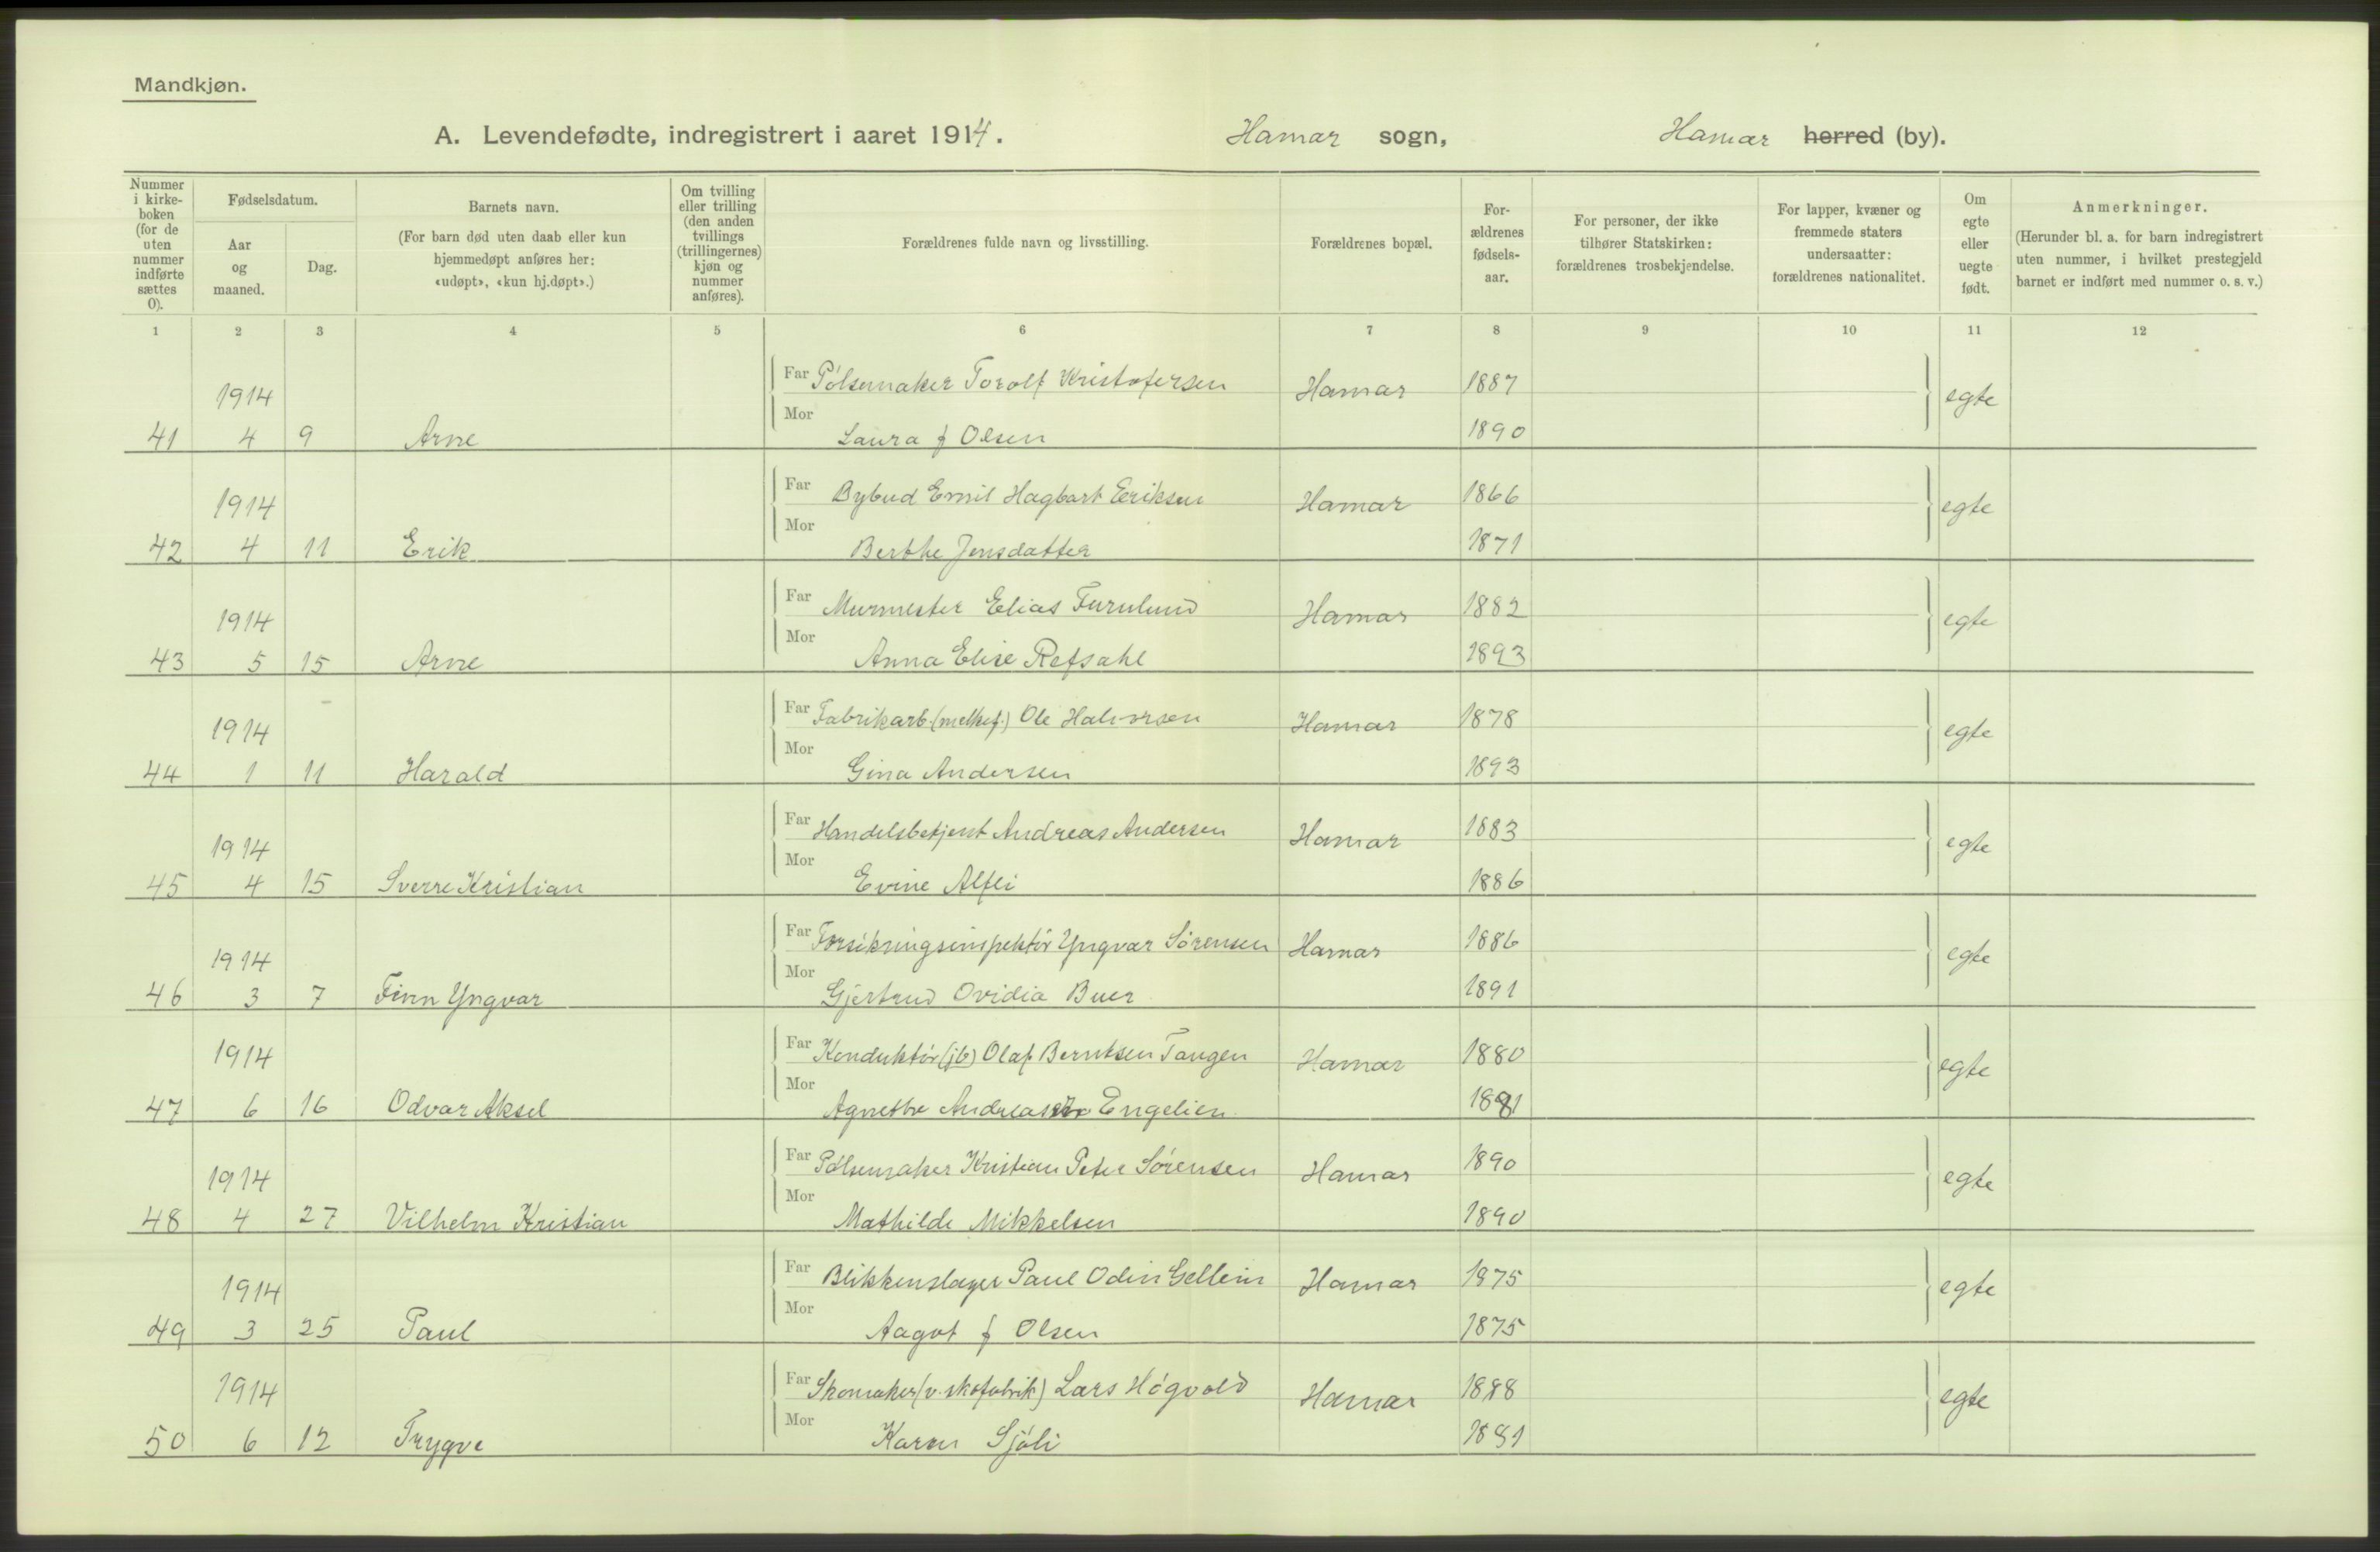 Mandkjøn.
A. Levendefødte, indregistrert i aaret 1914. Hamar sogn, Hamar herred (by).
Nummer i kirke-boken (for de uten nummer indførte sættes 0).
Fødselsdatum.
Aar og maaned.
Dag.
Barnets navn.
(For barn død uten daab eller kun hjemmedøpt anføres her: «udøpt», «kun hj.døpt».)
Om tvilling eller trilling (den anden tvillings (trillingernes) kjøn og nummer anføres).
Forældrenes fulde navn og livsstilling.
Forældrenes bopæl.
For-ældrenes fødsels-aar.
For personer, der ikke tilhører Statskirken: forældrenes trosbekjendelse.
For lapper, kvæner og fremmede staters undersaatter: forældrenes nationalitet.
Om egte eller uegte født.
Anmerkninger.
(Herunder bl. a. for barn indregistrert uten nummer, i hvilket prestegjeld barnet er indført med nummer o. s. v.)
1 2 3 4 5 6 7 8 9 10 11 12
1914 Far Pølsemaker Torolf Kristofersen Hamar 1887 egte
41 4 9 Arne Mor Laura f Olsen 1890
1914 Far Bybud Emil Hagbart Eriksen Hamar 1866 egte
42 4 11 Erik Mor Berthe Jensdatter 1871
1914 Far Murmester Elias Furulund Hamar 1882 egte
43 5 15 Arne Mor Anna Elise Refsahl 1893
1914 Far Fabrikarb. (melkef.) Ole Halvorsen Hamar 1878 egte
44 1 11 Harald Mor Gina Andersen 1893
1914 Far Handelsbetjent Andreas Andersen Hamar 1883 egte
45 4 15 Sverre Kristian Mor Evine Alfli 1886
1914 Far Forsikringsinspektør Yngvar Sørensen Hamar 1886 egte
46 3 7 Finn Yngvar Mor Gjertrud Ovidia Buer 1891
1914 Far Konduktør (jb) Olaf Berntsen Tangen Hamar 1880 egte
47 6 16 Odvar Aksel Mor Agnethe Engelien 1881
1914 Far Pølsemaker Kristian Peter Sørensen Hamar 1890 egte
48 4 27 Vilhelm Kristian Mor Mathilde Mikkelsen 1890
1914 Far Blikkenslager Paul Odin Gellein Hamar 1875 egte
49 3 25 Paul Mor Aagot f Olsen 1875
1914 Far Skomaker (v. skofabrik) Lars Høgvold Hamar 1888 egte
50 6 12 Trygve Mor Karen Sjøli 1881